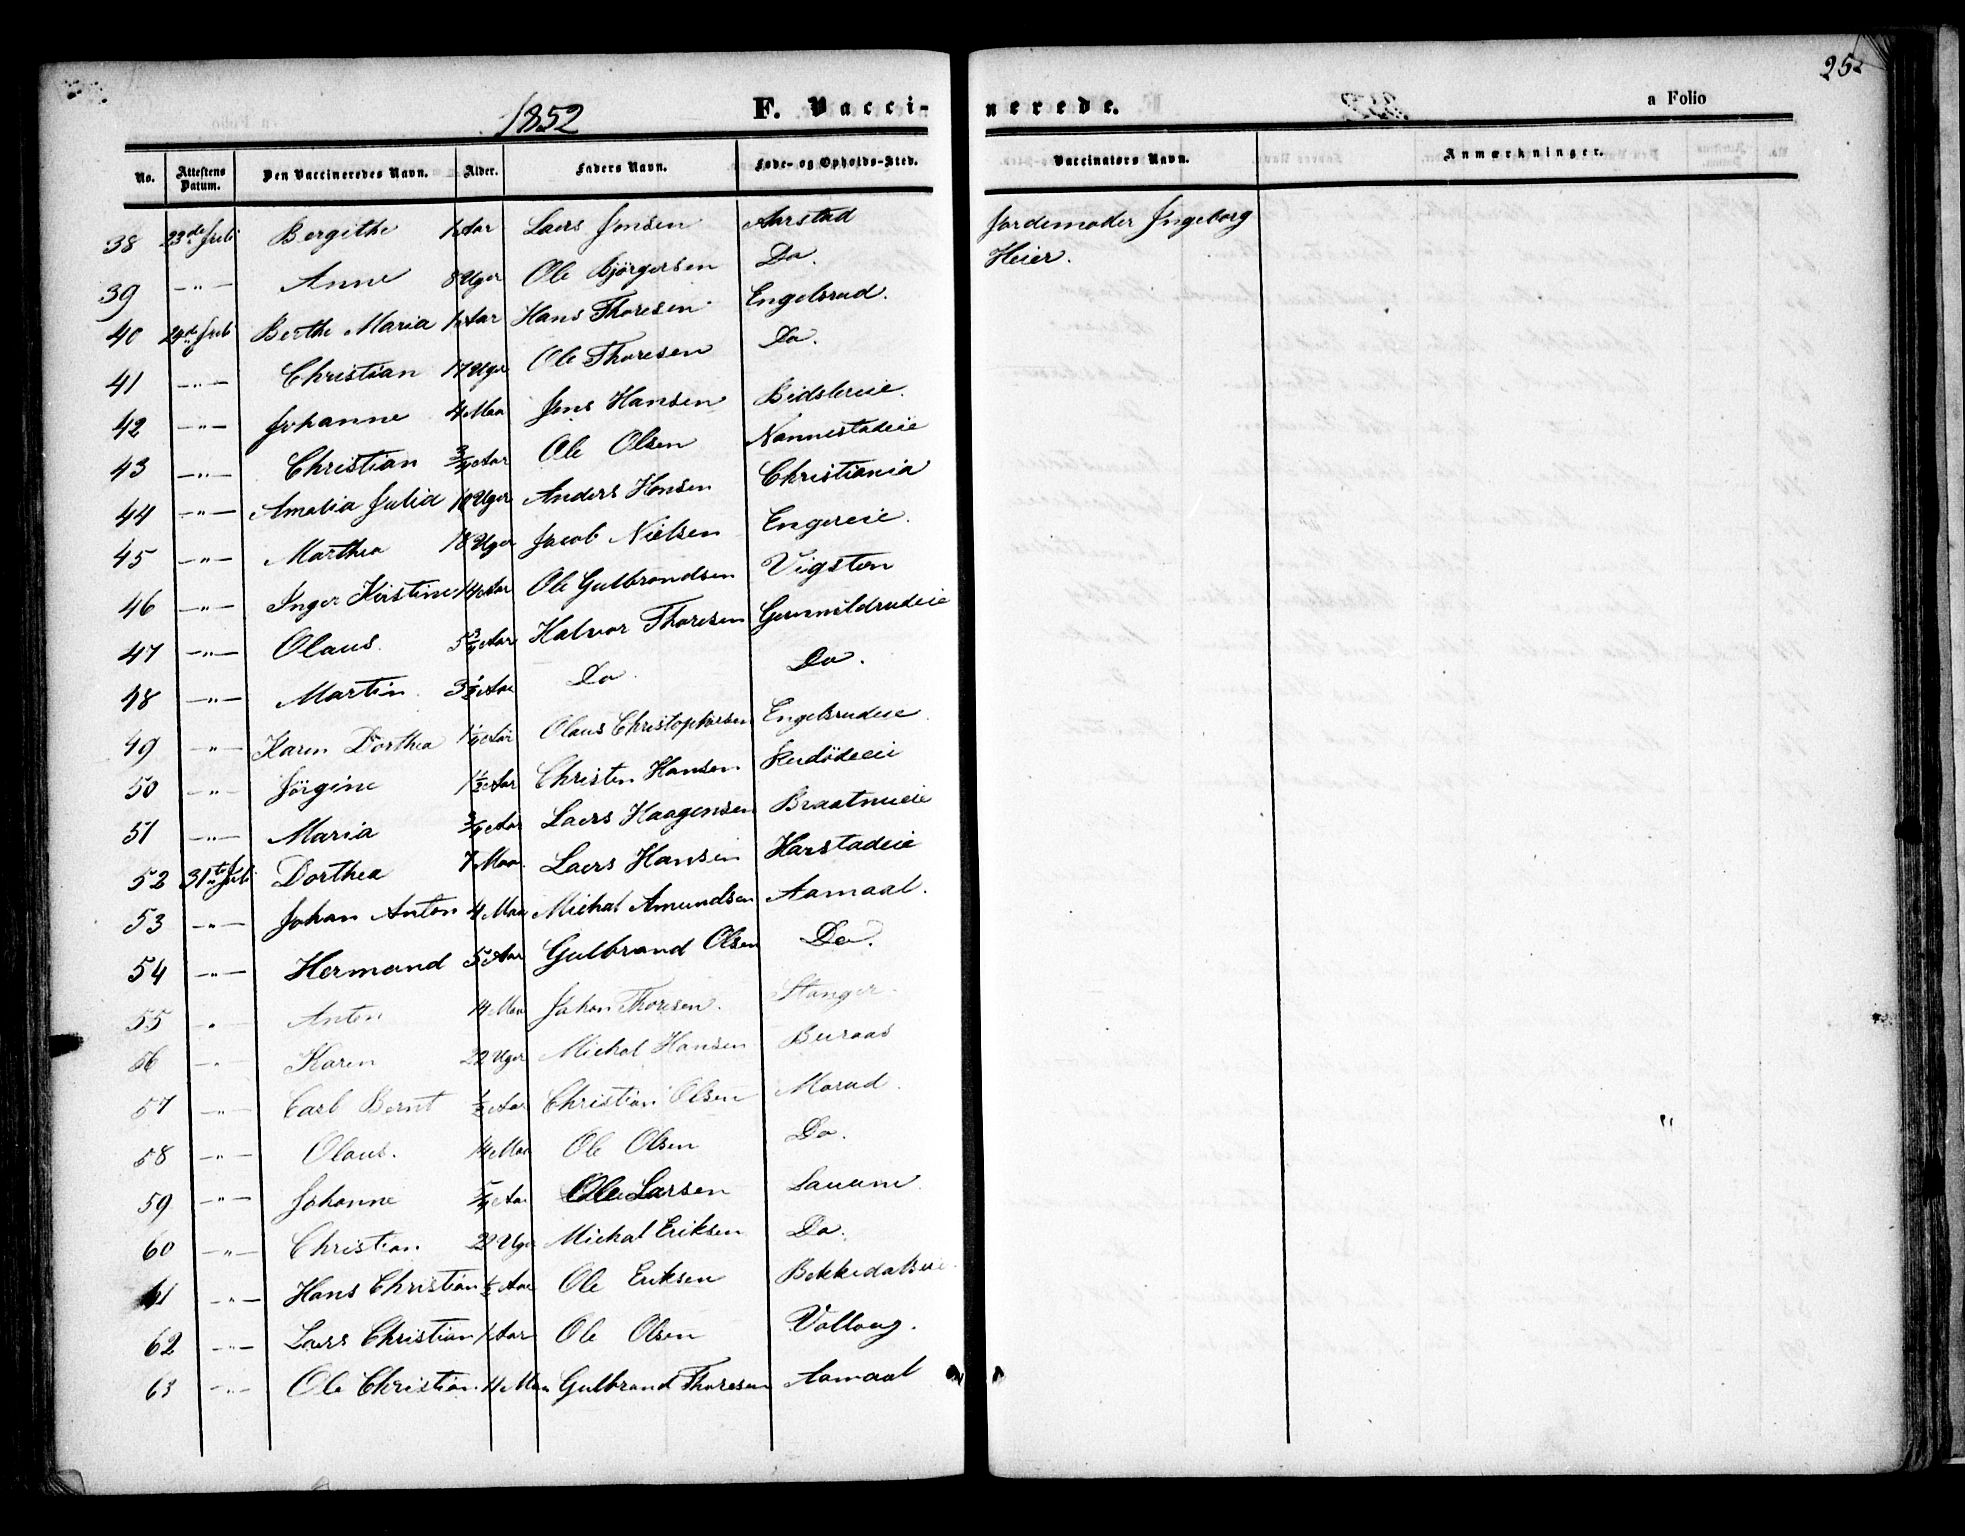 252
1852 F. Vacci- nerede. a Folio
No. Attestens Datum. Den Vaccineredes Navn. Alder. Faders Navn. Føde- og Opholds-Sted. Vaccinators Navn. Anmærkninger.
38 23de Juli Bergithe Aar Lars Jensen Aarstad Jordemoder Ingeborg
39 —"— Anne 8 Uger Ole Bjørgersen Do. Heier.
40 24de Juli Berthe Maria Aar Hans Thoresen Engelsrud.
41 —"— Christian 17 Uger Ole Thoresen Do.
42 —"— Johanne 4 Maa Jens Hansen Bidslereie.
43 —"— Christian 3/4 Aar Ole Olsen Nannestadeie
44 —"— Amalia Julia 10 Uger Anders Hansen Christiania
45 —"— Marthea 18 Uger Jacob Nielsen Engereie.
46 —"— Inger Kirstine Aar Ole Gulbrandsen Vigsten
47 —"— Olaus. 5 3/4 Aar Halvor Thoresen Gunnildrudeie
48 —"— Martin. 3 1/2 Aar Do Do.
49 "— Karen Dorthea 1 1/4 Aar Olaus Christophersen Engelsrudeie.
50 —"— Jörgine 1 1/2 Aar Christen Hansen
51 —"— Maria 3/4 Aar Lars Haagensen Braatnueie
52 31te Juli Dorthea 7 Maa. Lars Hansen Harstadeie
53 —"— Johan Anton 4 Maa Michal Amundsen Aamaal.
54 —"— Hermand 5 Aar Gulbrand Olsen Do.
55 " Anton 14 Maa Johan Thoresen. Stanger.
56 —"— Karen 22 Uger Michal Hansen Buraas
57 —"— Carl Bernt 1/2 Aar Christian Olsen Morud.
58 —"— Olaus. 14 Maa Ole Olsen Do.
59 —"— Johanne 5/4 Aar Ole Larsen Sauum
60 —"— Christian Uger Michal Eriksen Do.
61 —"— Hans Christian 1/2 Aar Ole Eriksen Bekkedalseie.
62 —"— Lars Christian Aar Ole Olsen Vollaug.
63 —"— Ole Christian Maa Gulbrand Thoresen Aamaal